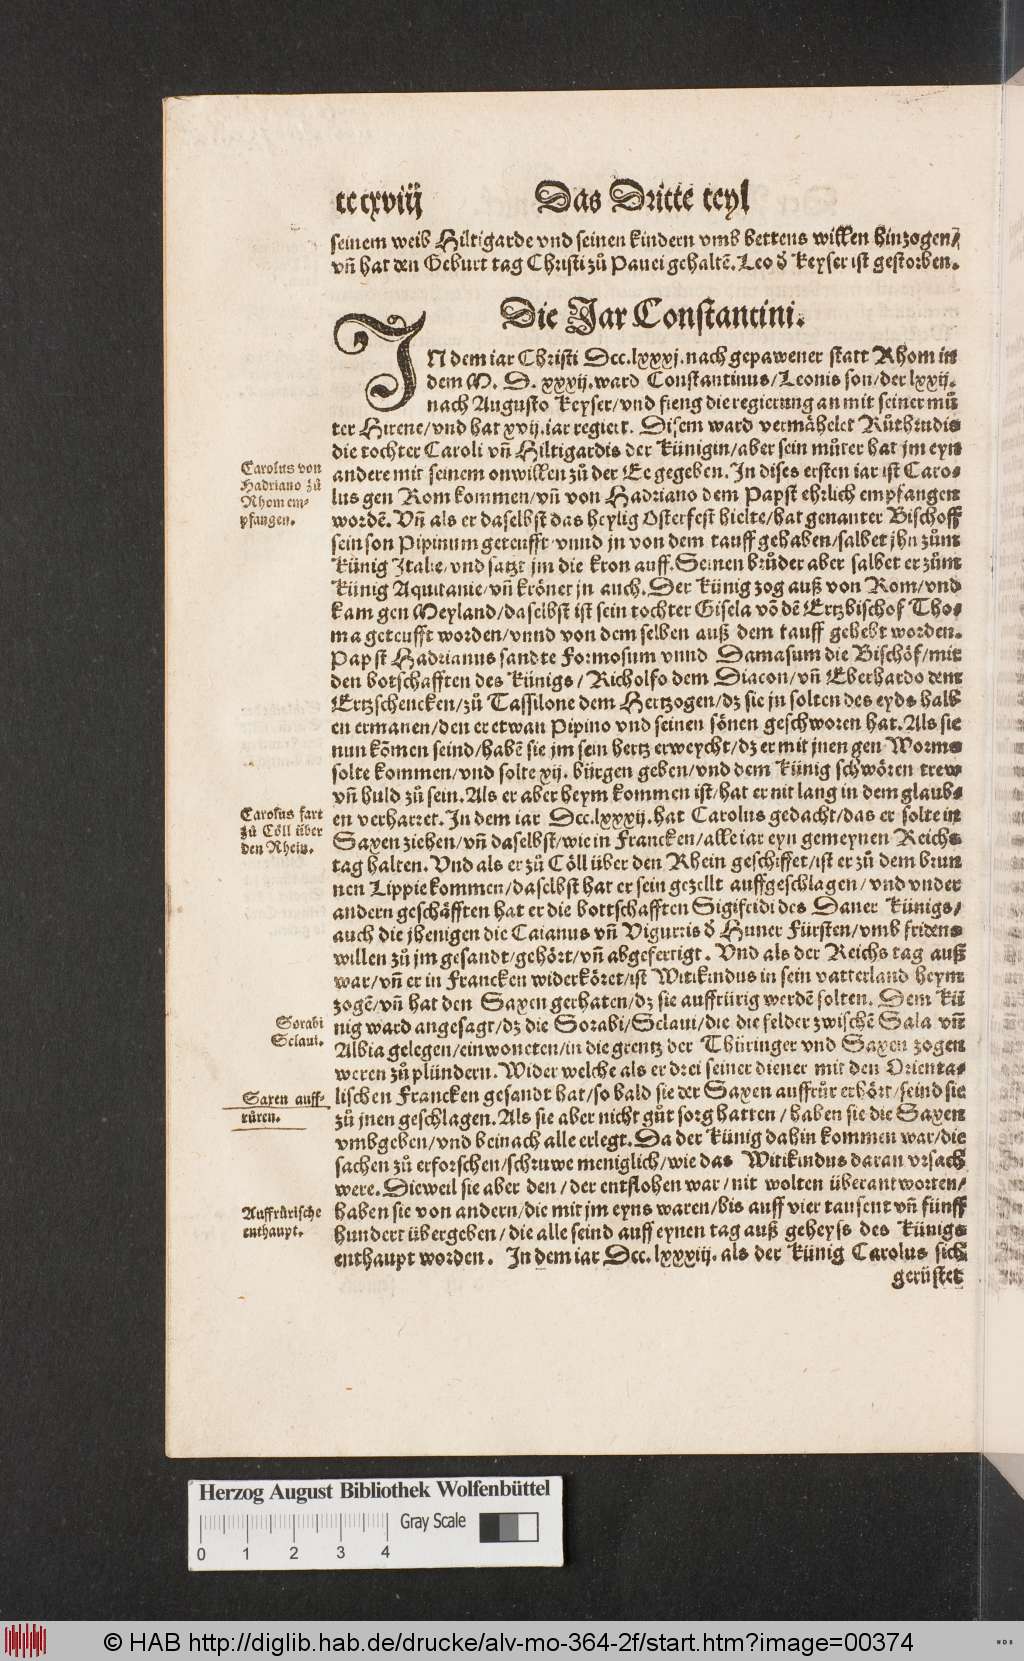 ccxviij Das Dritte teyl
seinem weib Hiltigarde vnd seinen kindern vmb bettens willen hinzogen/
vñ hat den Geburt tag Christi zů Pauei gehaltē. Leo d̕ Keyser ist gestorben.
Die Jar Constantini.
IN dem iar Christi Dcc.lxxxj. nach gepawener statt Rhom in
dem M. D. xxxij. ward Constantinus/Leonis son/der lxxij.
nach Augusto Keyser/vnd fieng die regierung an mit seiner mů
ter Hirene/vnd hat xvij. iar regiert. Disem ward vermähelet Růthrudis
die tochter Caroli vñ Hiltigardis der Künigin/aber sein můter hat jm eyn
Carolus von
Hadriano zů
Rhom em-
pfangen.
andere mit seinem onwillen zů der Ee gegeben. In dises ersten iar ist Caro-
lus gen Rom kommen/vñ von Hadriano dem Papst ehrlich empfangen
wordē. Vñ als er daselbst das heylig Osterfest hielte/hat genanter Bischoff
sein son Pipinum geteufft/vnnd jn von dem tauff gehaben/salbet jhn zům
Künig Italie/vnd satzt jm die kron auff. Seinen brůder aber salbet er zům
Künig Aquitanie/vñ kröner jn auch. Der Künig zog auß von Rom/vnd
kam gen Meyland/daselbst ist sein tochter Gisela vō dē Ertzbischof Tho-
ma geteufft worden/vnnd von dem selben auß dem tauff gehebt worden.
Papst Hadrianus sandte Formosum vnnd Damasum die Bischöf/mit
den botschafften des Künigs/Richolfo dem Diacon/vñ Eberhardo dem
Ertzschencken/zů Tassilone dem Hertzogen/dz sie jn solten des eyds halb
en ermanen/den er etwan Pipino vnd seinen sönen geschworen hat. Als sie
nun kōmen seind/habē sie jm sein hertz erweycht/dz er mit jnen gen Worms
solte kommen/vnd solte xij. bürgen geben/vnd dem Künig schwören trew
vñ huld zů sein. Als er aber heym kommen ist/hat er nit lang in dem glaub-
Carolus fart
zů Cöll über
den Rhein.
en verharret. In dem iar Dcc.lxxxij. hat Carolus gedacht/das er solte in
Saxen ziehen/vñ daselbst/wie in Francken/alle iar eyn gemeynen Reichs
tag halten. Vnd als er zů Cöll über den Rhein geschiffet/ist er zů dem brun
nen Lippie kommen/daselbst hat er sein gezellt auffgeschlagen/vnd vnder
andern geschäfften hat er die bottschafften Sigifridi des Daner Künigs/
auch die jhenigen die Caianus vñ Vigurris d̕ Huner Fürsten/vmb fridens
willen zů jm gesandt/gehört/vñ abgefertigt. Vnd als der Reichs tag auß
war/vñ er in Francken widerköret/ist Witikindus in sein vatterland heym
zogē/vñ hat den Saxen gerhaten/dz sie auffrürig werdē solten. Dem Kü
Sorabi
Sclaui.
nig ward angesagt/dz die Sorabi/Sclaui/die die felder zwischē Sala vñ
Albia gelegen/einwoneten/in die grentz der Thüringer vnd Saxen zogen
weren zů plündern. Wider welche als er drei seiner diener mit den Orienta-
Saxen auff-
rüren.
lischen Francken gesandt hat/so bald sie der Saxen auffrůr erhört/seind sie
zů jnen geschlagen. Als sie aber nicht gůt sorg hatten/haben sie die Saxen
vmbgeben/vnd beinach alle erlegt. Da der Künig dahin kommen war/die
sachen zů erforschen/schruwe meniglich/wie das Witikindus daran vrsach
were. Dieweil sie aber den/der entflohen war/nit wolten überantworten/
Auffrůrische
enthaupt.
haben sie von andern/die mit jm eyns waren/bis auff vier tausent vñ fünff
hundert übergeben/die alle seind auff eynen tag auß geheyss des Künigs
enthaupt worden. In dem iar Dcc.lxxxiij. als der Künig Carolus sich
gerüstet
Herzog August Bibliothek Wolfenbüttel
Gray Scale
0 1 2 3 4
© HAB http://diglib.hab.de/drucke/alv-mo-364-2f/start.htm?image=00374